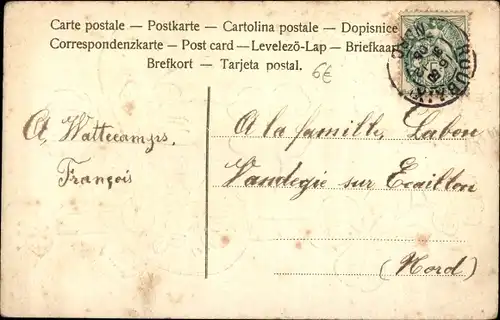 Carte postale — Postkarte — Cartolina postale — Dopisnice
Correspondenzkarte — Post card — Levelező-Lap — Briefkaart
Brefkort — Tarjeta postal.
6€
ROUBAIX
A la famille, Labon
Vandegie sur Ecaillon
(Nord)
A, Watteamps,
François